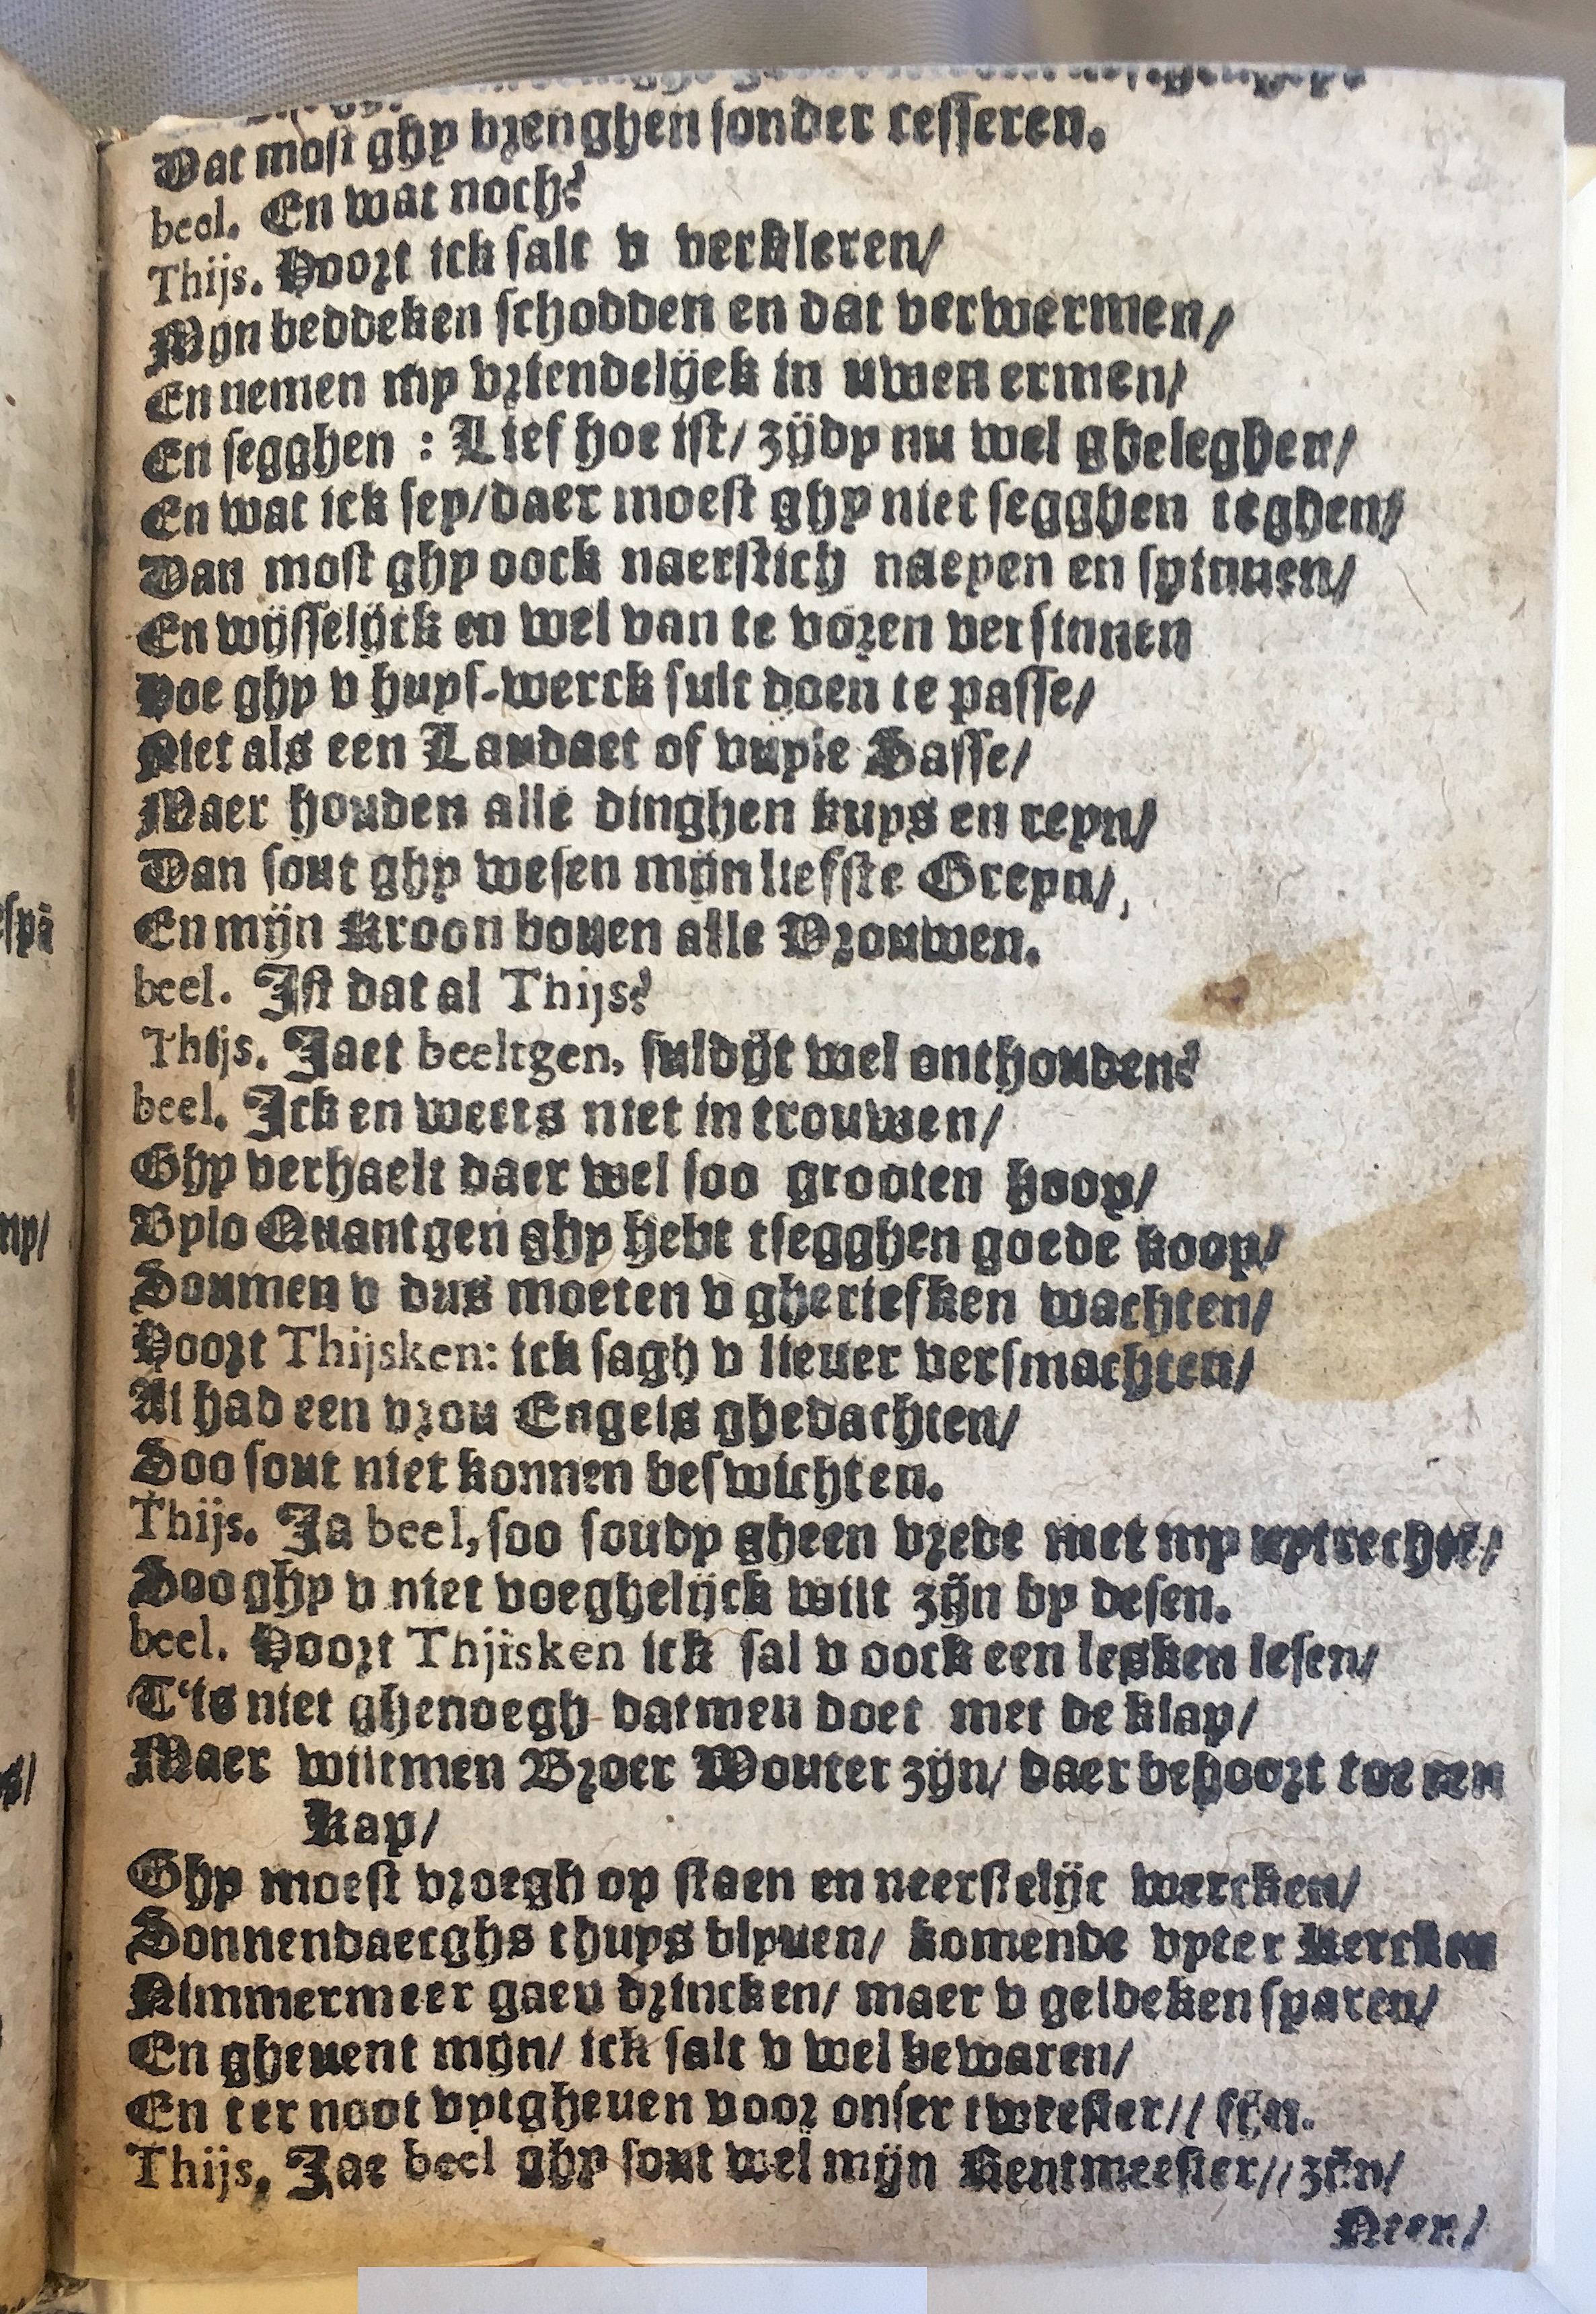 Dat most ghy brenghen sonder cesseren.
beel. En wat noch?
Thijs. Hoort ick salt v verkleren/
Mijn beddeken schodden en dat verwermen/
En nemen my vriendelijck in uwen ermen/
En segghen : Lief hoe ist/ zijdy nu wel gheleghen/
En wat ick sey/daer moest ghy niet segghen teghen/
Dan most ghy oock naerstich naeyen en spinnen/
En wijsselijck en wel van te voren versinnen
Hoe ghy v huys-werck sult doen te passe/
Niet als een Laudaet of vuyle Sasse/
Maer houden alle dinghen kuys en reyn/
Dan sout ghy wesen mijn liefste Greyn/
En mijn Kroon boven alle Vrouwen.
beel. Ist dat al Thijs?
Thijs. Jaet beeltgen, suldijt wel onthouden?
beel. Ick en weets niet in trouwen/
Ghy verhaelt daer wel soo grooten hoop/
Bylo Quantgen ghy hebt tsegghen goede koop/
Soumen v dus moeten v gheriefken wachten/
Hoort Thijsken: ick sagh v liever versmachten/
Al had een vrou Engels ghedachten/
Soo sout niet konnen beswichten.
Thijs. Ja beel, soo soudy gheen vrede met my uytrechtē/
Soo ghy v niet voeghelijck wilt zijn by desen.
beel. Hoort Thjisken ick sal v oock een lesken lesen/
T'is niet ghenoegh datmen doet met de klap/
Maer wiltmen Broer Wouter zijn/ daer behoort toe een
Kap/
Ghy moest vroegh op staen en neerstelijc wercken/
Sonnendaeghs thuys blyven/ komende vyter Kercken
Nimmermeer gaen drincken/ maer v geldeken sparen/
En ghevent mijn/ ick salt v wel bewaren/
En ter noot vytgheven voor onser tweester// sijn.
Thijs, Jae beel ghy sout wel mijn Rentmeester// zijn/
Neen/